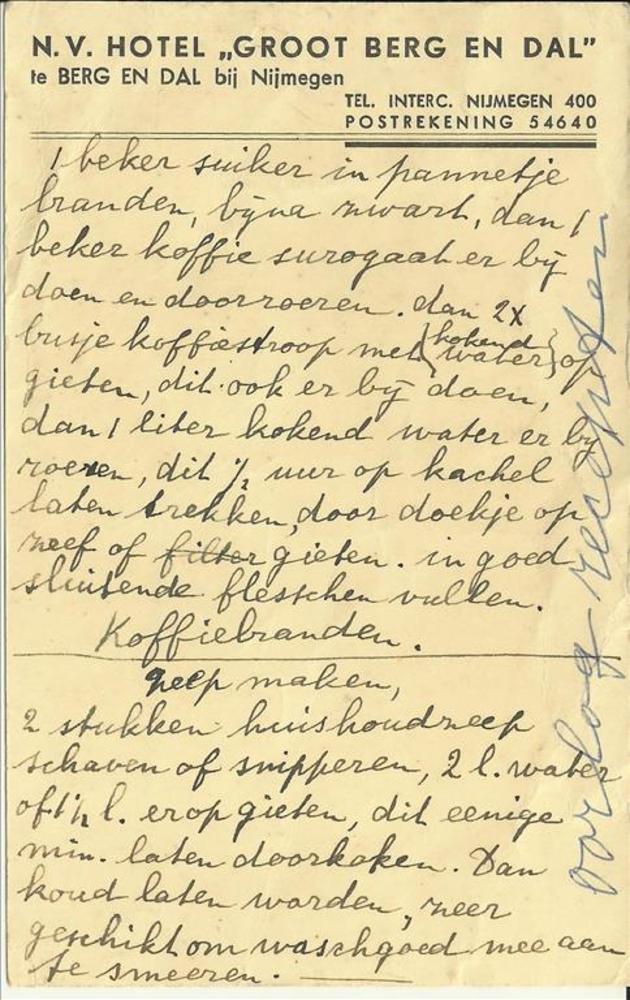 N.V. HOTEL „GROOT BERG EN DAL”
te BERG EN DAL bij Nijmegen
TEL. INTERC. NIJMEGEN 400
POSTREKENING 54640
1 beker suiker in pannetje
branden, bijna zwart, dan 1
beker koffie surogaat er bij
doen en doorroeren. dan 2X
busje koffiestroop met (kokend water) op
gieten, dit ook er bij doen,
dan 1 liter kokend water er bij
roeren, dit ½ uur op kachel
laten trekken, door doekje op
zeef of filter gieten. in goed
sluitende flesschen vullen.
Koffiebranden.
Zeep maken,
2 stukken huishoudzeep
schaven of snipperen, 2 l. water
of 1½ l. erop gieten, dit eenige
min. laten doorkoken. Dan
koud laten worden, zeer
geschikt om waschgoed mee aan
te smeeren.
oorlog recepten